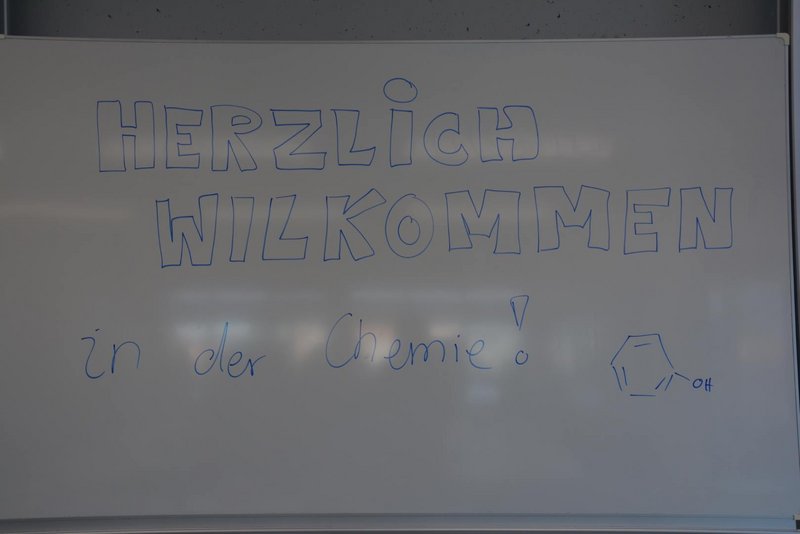 HERZLiCH
WILKOMMEN
in der Chemie!
OH